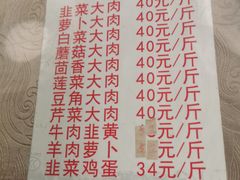 韭菜大肉 40元/斤
萝卜大肉 40元/斤
白菜大肉 40元/斤
蘑菇大肉 40元/斤
茴香大肉 40元/斤
莲菜大肉 40元/斤
豆角大肉 40元/斤
芹菜大肉 40元/斤
牛肉韭黄 元/斤
羊肉萝卜 元/斤
韭菜鸡蛋 34元/斤